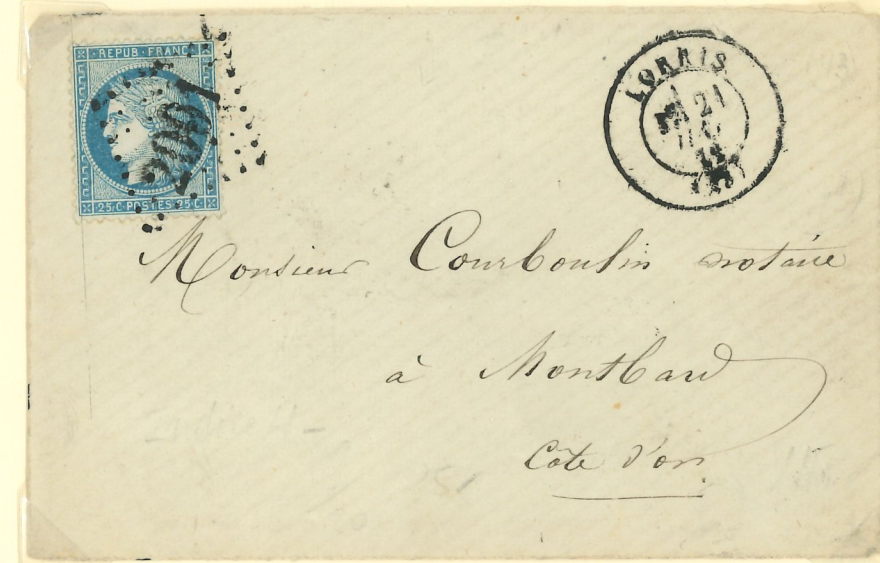 REPUB · FRANC
2081
25 C POSTES 25 C
LORRIS
21
Monsieur Courboulin notaire
à Montbard
Côte d'or